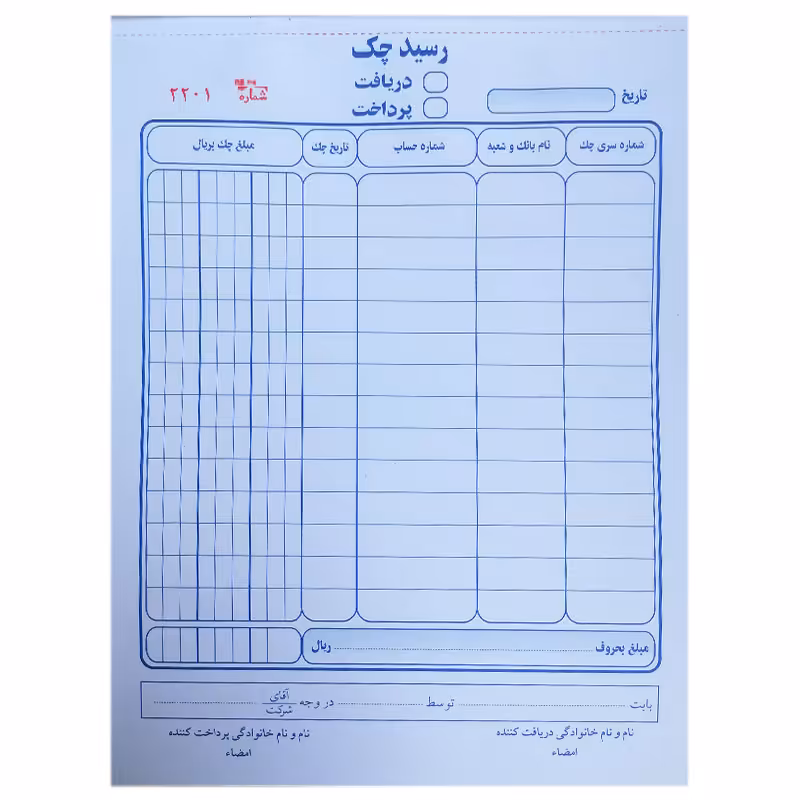 رسید چک
دریافت
پرداخت
تاریخ
شماره ۲۲۰۱
شماره سری چک نام بانک و شعبه شماره حساب تاریخ چک مبلغ چک بریال
مبلغ بحروف ریال
بابت توسط در وجه آقای شرکت
نام و نام خانوادگی دریافت کننده نام و نام خانوادگی پرداخت کننده
امضاء امضاء